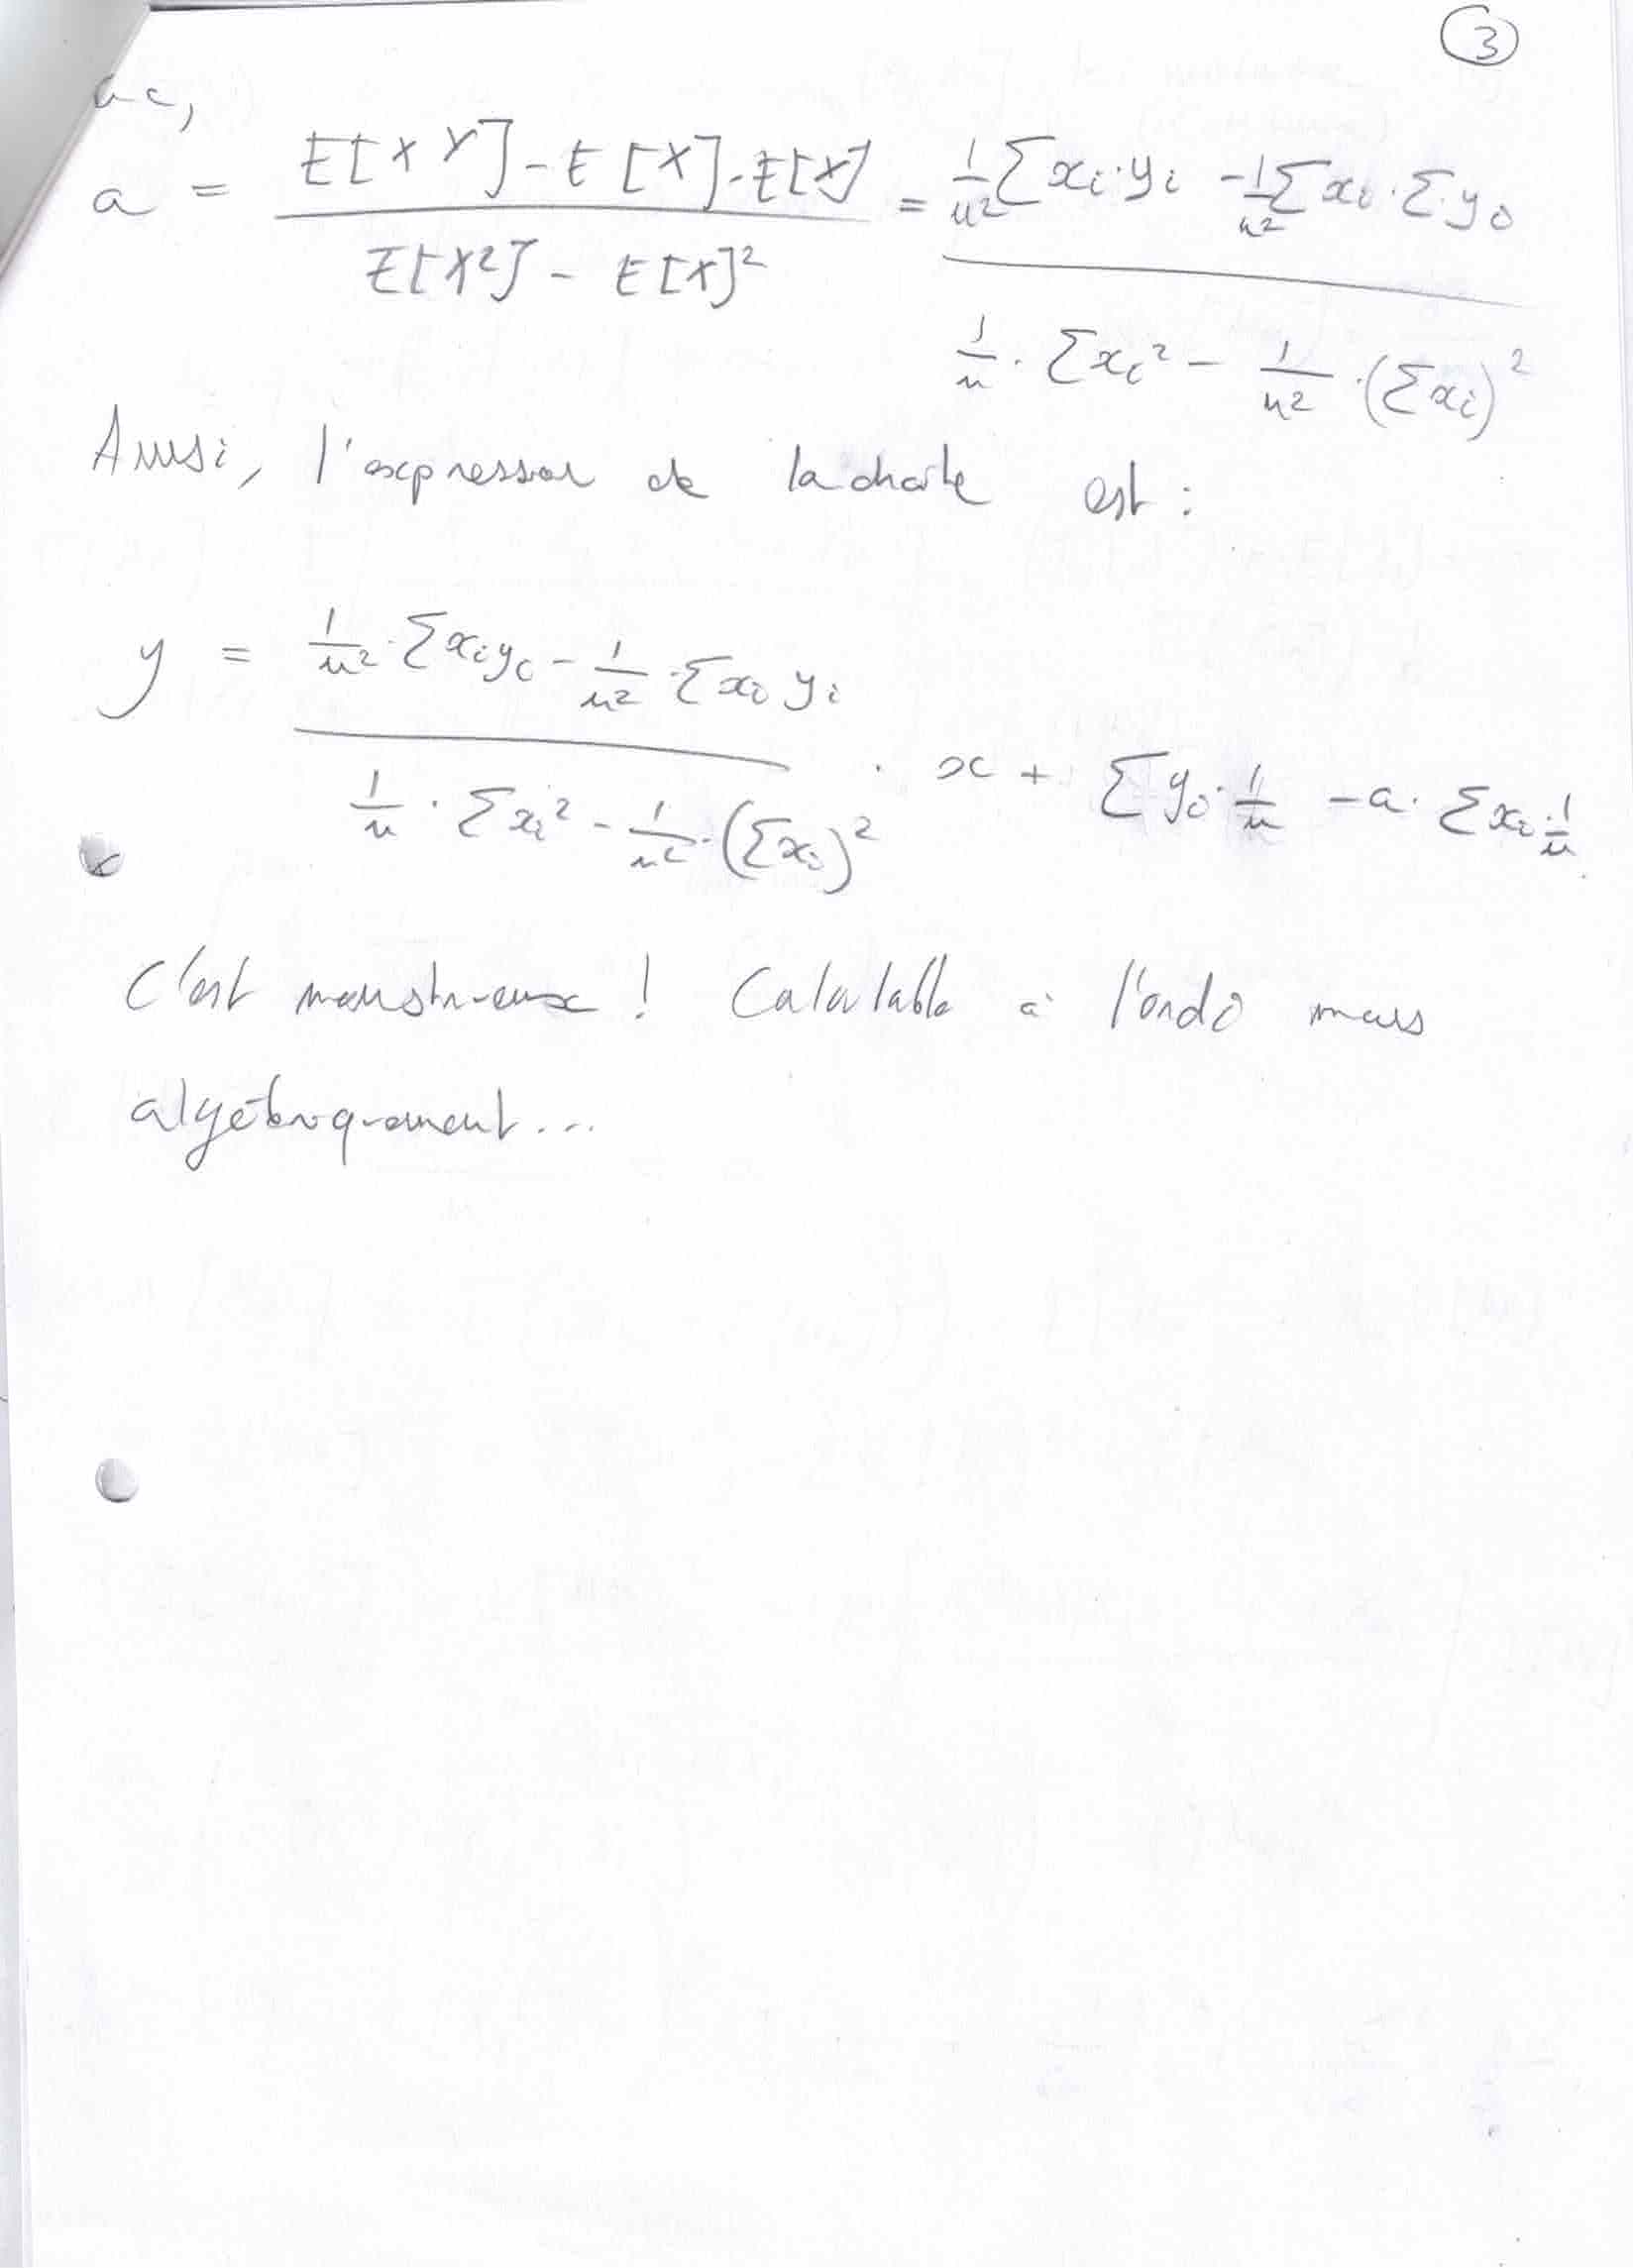 ③
nc,
a = (E[XY] - E[X].E[X]) / (E[X²] - E[X]²) = (1/n² Σ xi·yi - 1/n² Σ xi · Σ yi) / (1/n · Σ xi² - 1/n² · (Σ xi)²)
Ainsi, l'expression de la droite est :
y = (1/n² · Σ xi yi - 1/n² · Σ xi yi) / (1/n · Σ xi² - 1/n² · (Σ xi)²) · x + Σ yi · 1/n - a · Σ xi · 1/n
C'est monstrueux ! Calculable à l'ordi mais
algébriquement...